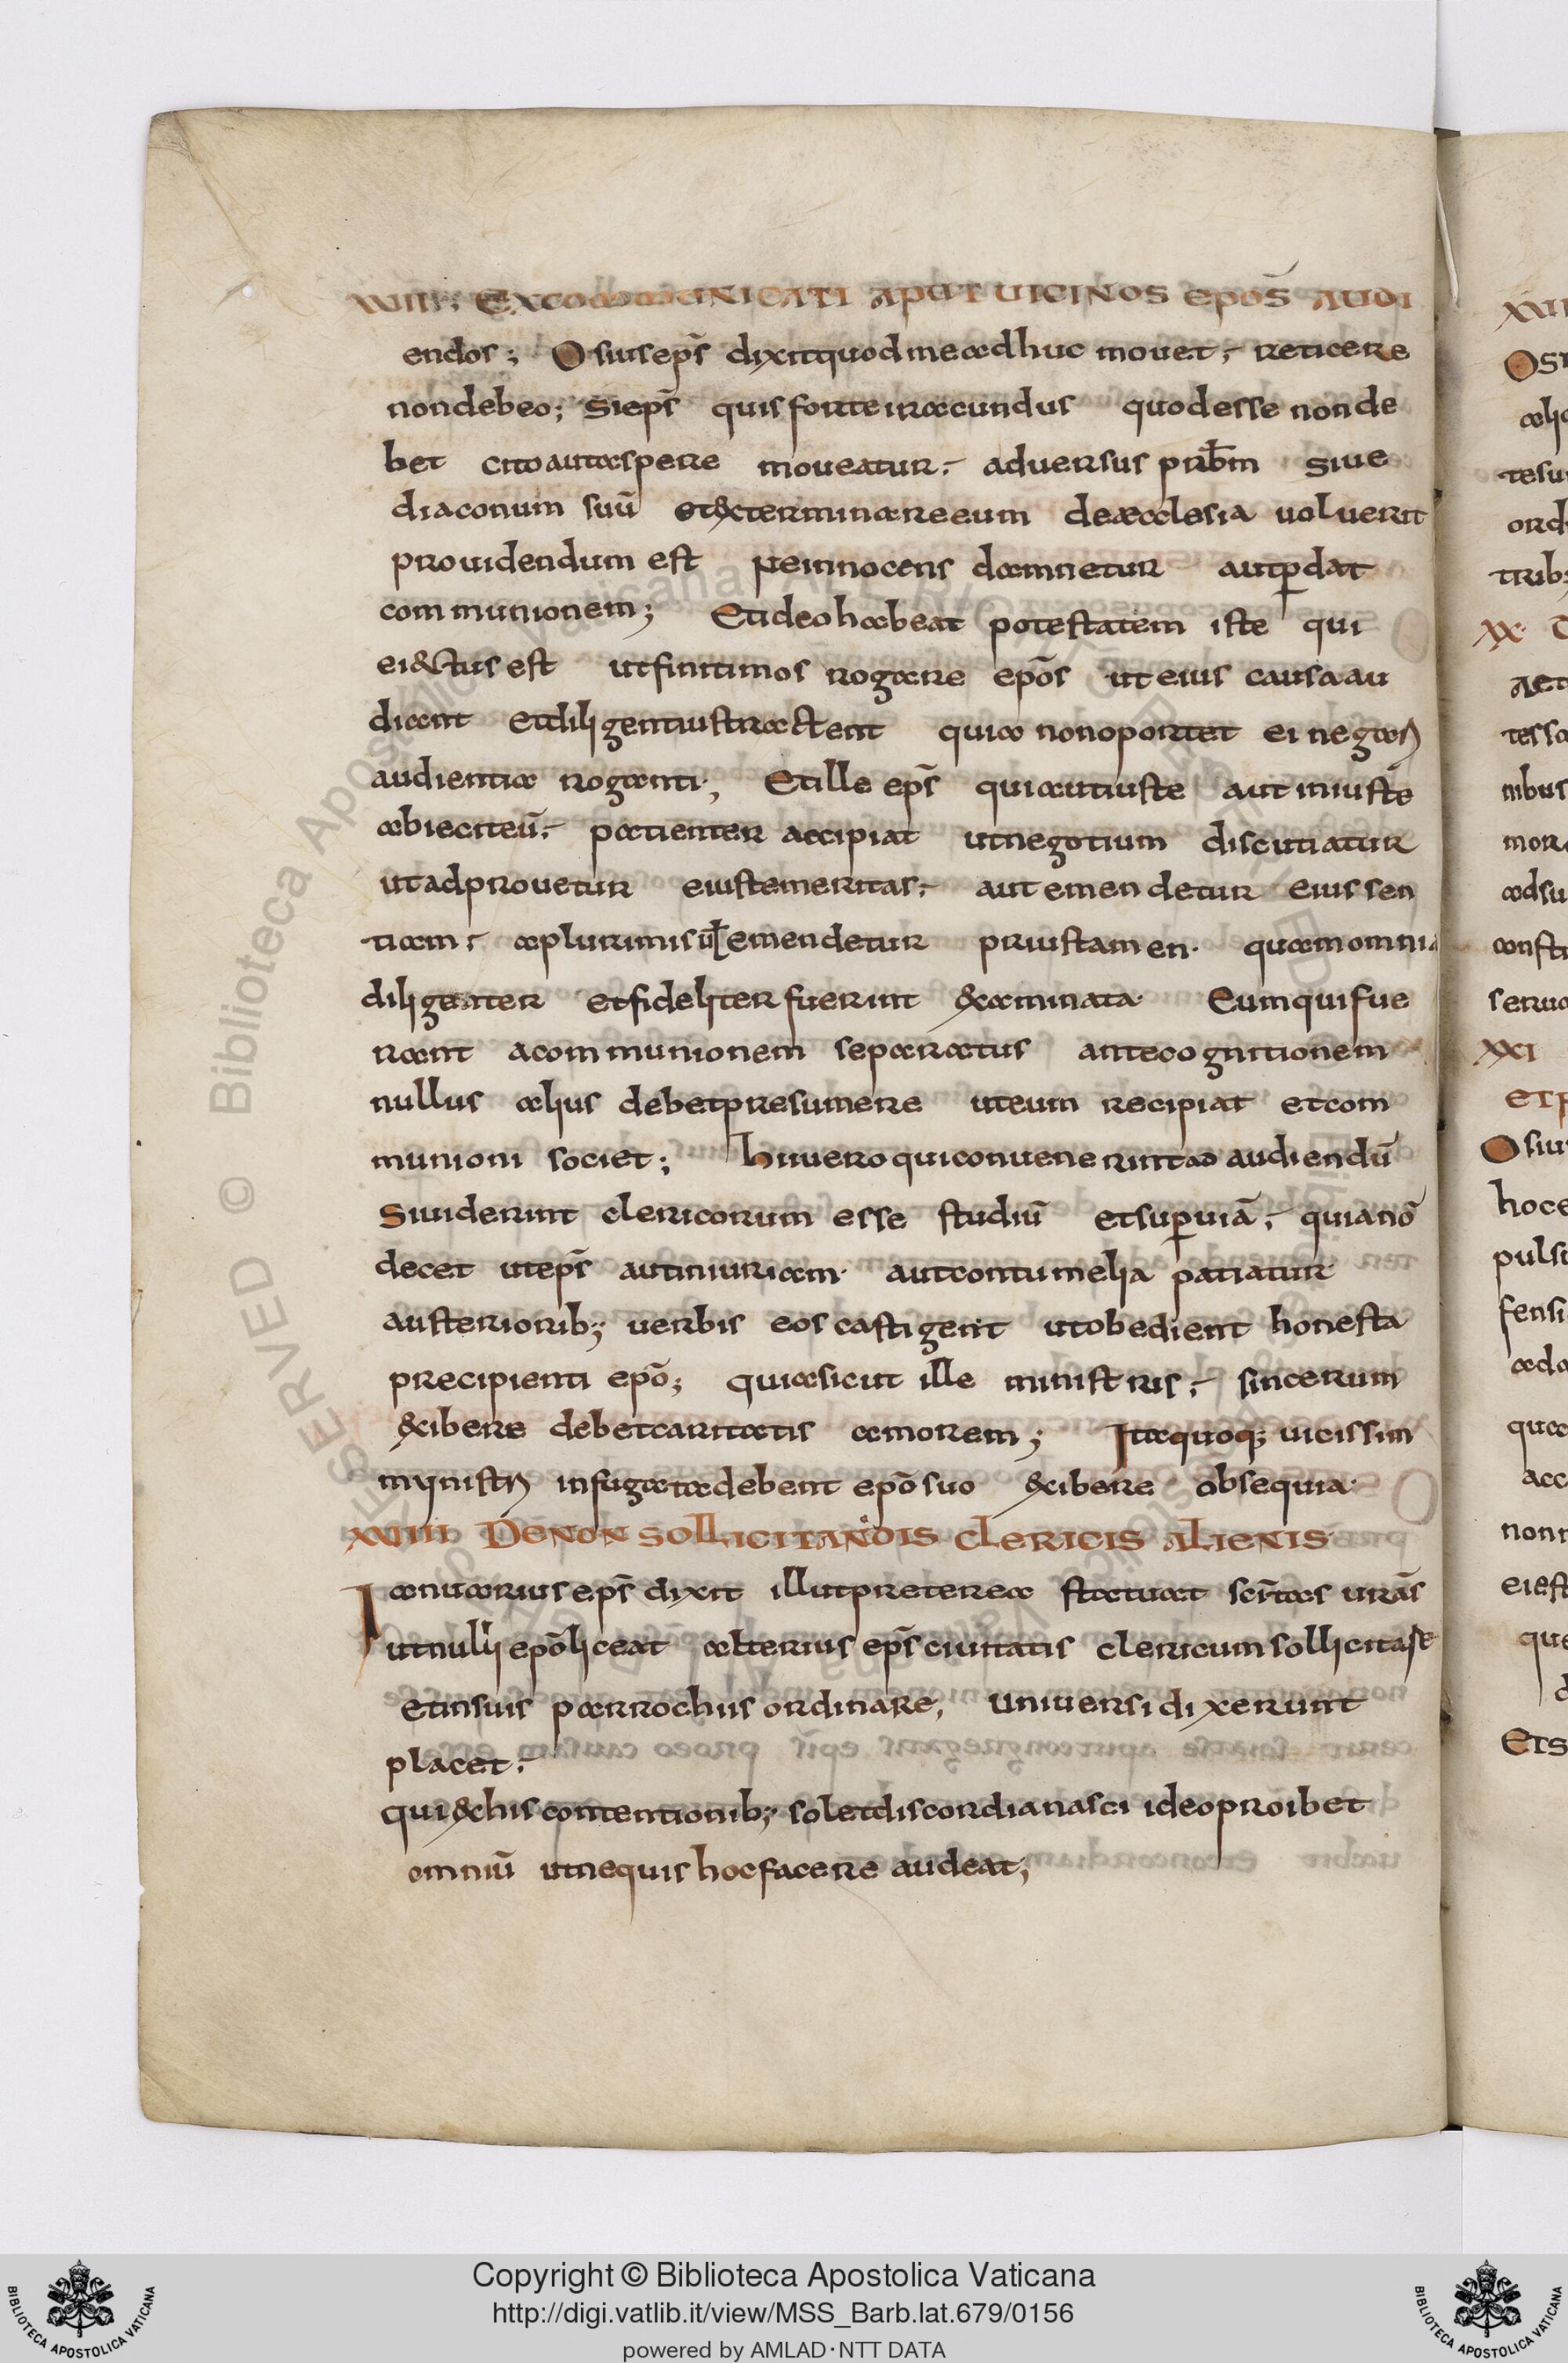 XVIII; EXCOMMUNICATI APUT UICINOS EPOS̄ AUDI
endos; Osius ep̄s dixit quod me adhuc mouet; reticere
non debeo; Si ep̄s quis forte iracundus quod esse non de
bet cito aut aspere moueatur; aduersus prb̄m siue
diaconum suū et exterminare eum de aecclesia uoluerit
prouidendum est ne innocens damnetur aut ꝑdat
communionem; Et ideo habeat potestatem iste qui
eiectus est ut finitimos rogare epōs ut eius causa au
diant et diligentius tractent quia non oportet ei negari
audientia roganti; Et ille ep̄s qui aut iuste aut iniuste
abiecit eū; patienter accipiat ut negotium discutiatur
ut adprouetur eius temeritas; aut emendetur eius sen
tiam; a plurimis uł emendetur prius tamen. quam omnia
diligenter et fideliter fuerint examinata. Eum qui fue
rant a communionem separatus ante cognitionem
nullus alius debet presumere ut eum recipiat et com
munioni societ; Hii uero qui conuenerint ad audiendū
Si uiderint clericorum esse studiū et suꝑuiā; quia nō
decet ut ep̄s aut iniuriam. aut contumelia patiatur
austeriorib; uerbis eos castigent ut obedient honesta
precipienti epō; quia sicut ille ministris; sincerum
exibere debet caritatis amorem; Ita quoq; uicissim
mynistri infugata debent epō suo exibere obsequia.
XVIIII DE NON SOLLICITANDIS CLERICIS ALIENIS
Ianuarius ep̄s dixit illut preterea statuat sc̄itas ur̄as
ut nulli epō liceat alterius ep̄s ciuitatis clericum sollicitare
et in suis parrochiis ordinare, uniuersi dixerunt
placet;
qui ex his contentionib; solet discordia nasci ideo proibet
omniū ut ne quis hoc facere audeat;
XVII
OSI
alic
tesu
ord
trib;
XX
AET
tessa
nibus
mor
adsu
consti
serua
XXI
ETP
Osius
hoc e
pulsi
fensi
ada
qua
acc
non
eiest
que
d
ETS
© Biblioteca Apostolica Vaticana
Copyright © Biblioteca Apostolica Vaticana
http://digi.vatlib.it/view/MSS_Barb.lat.679/0156
powered by AMLAD·NTT DATA
BIBLIOTECA APOSTOLICA VATICANA
BIBLIOTECA APOSTOLICA VATICANA